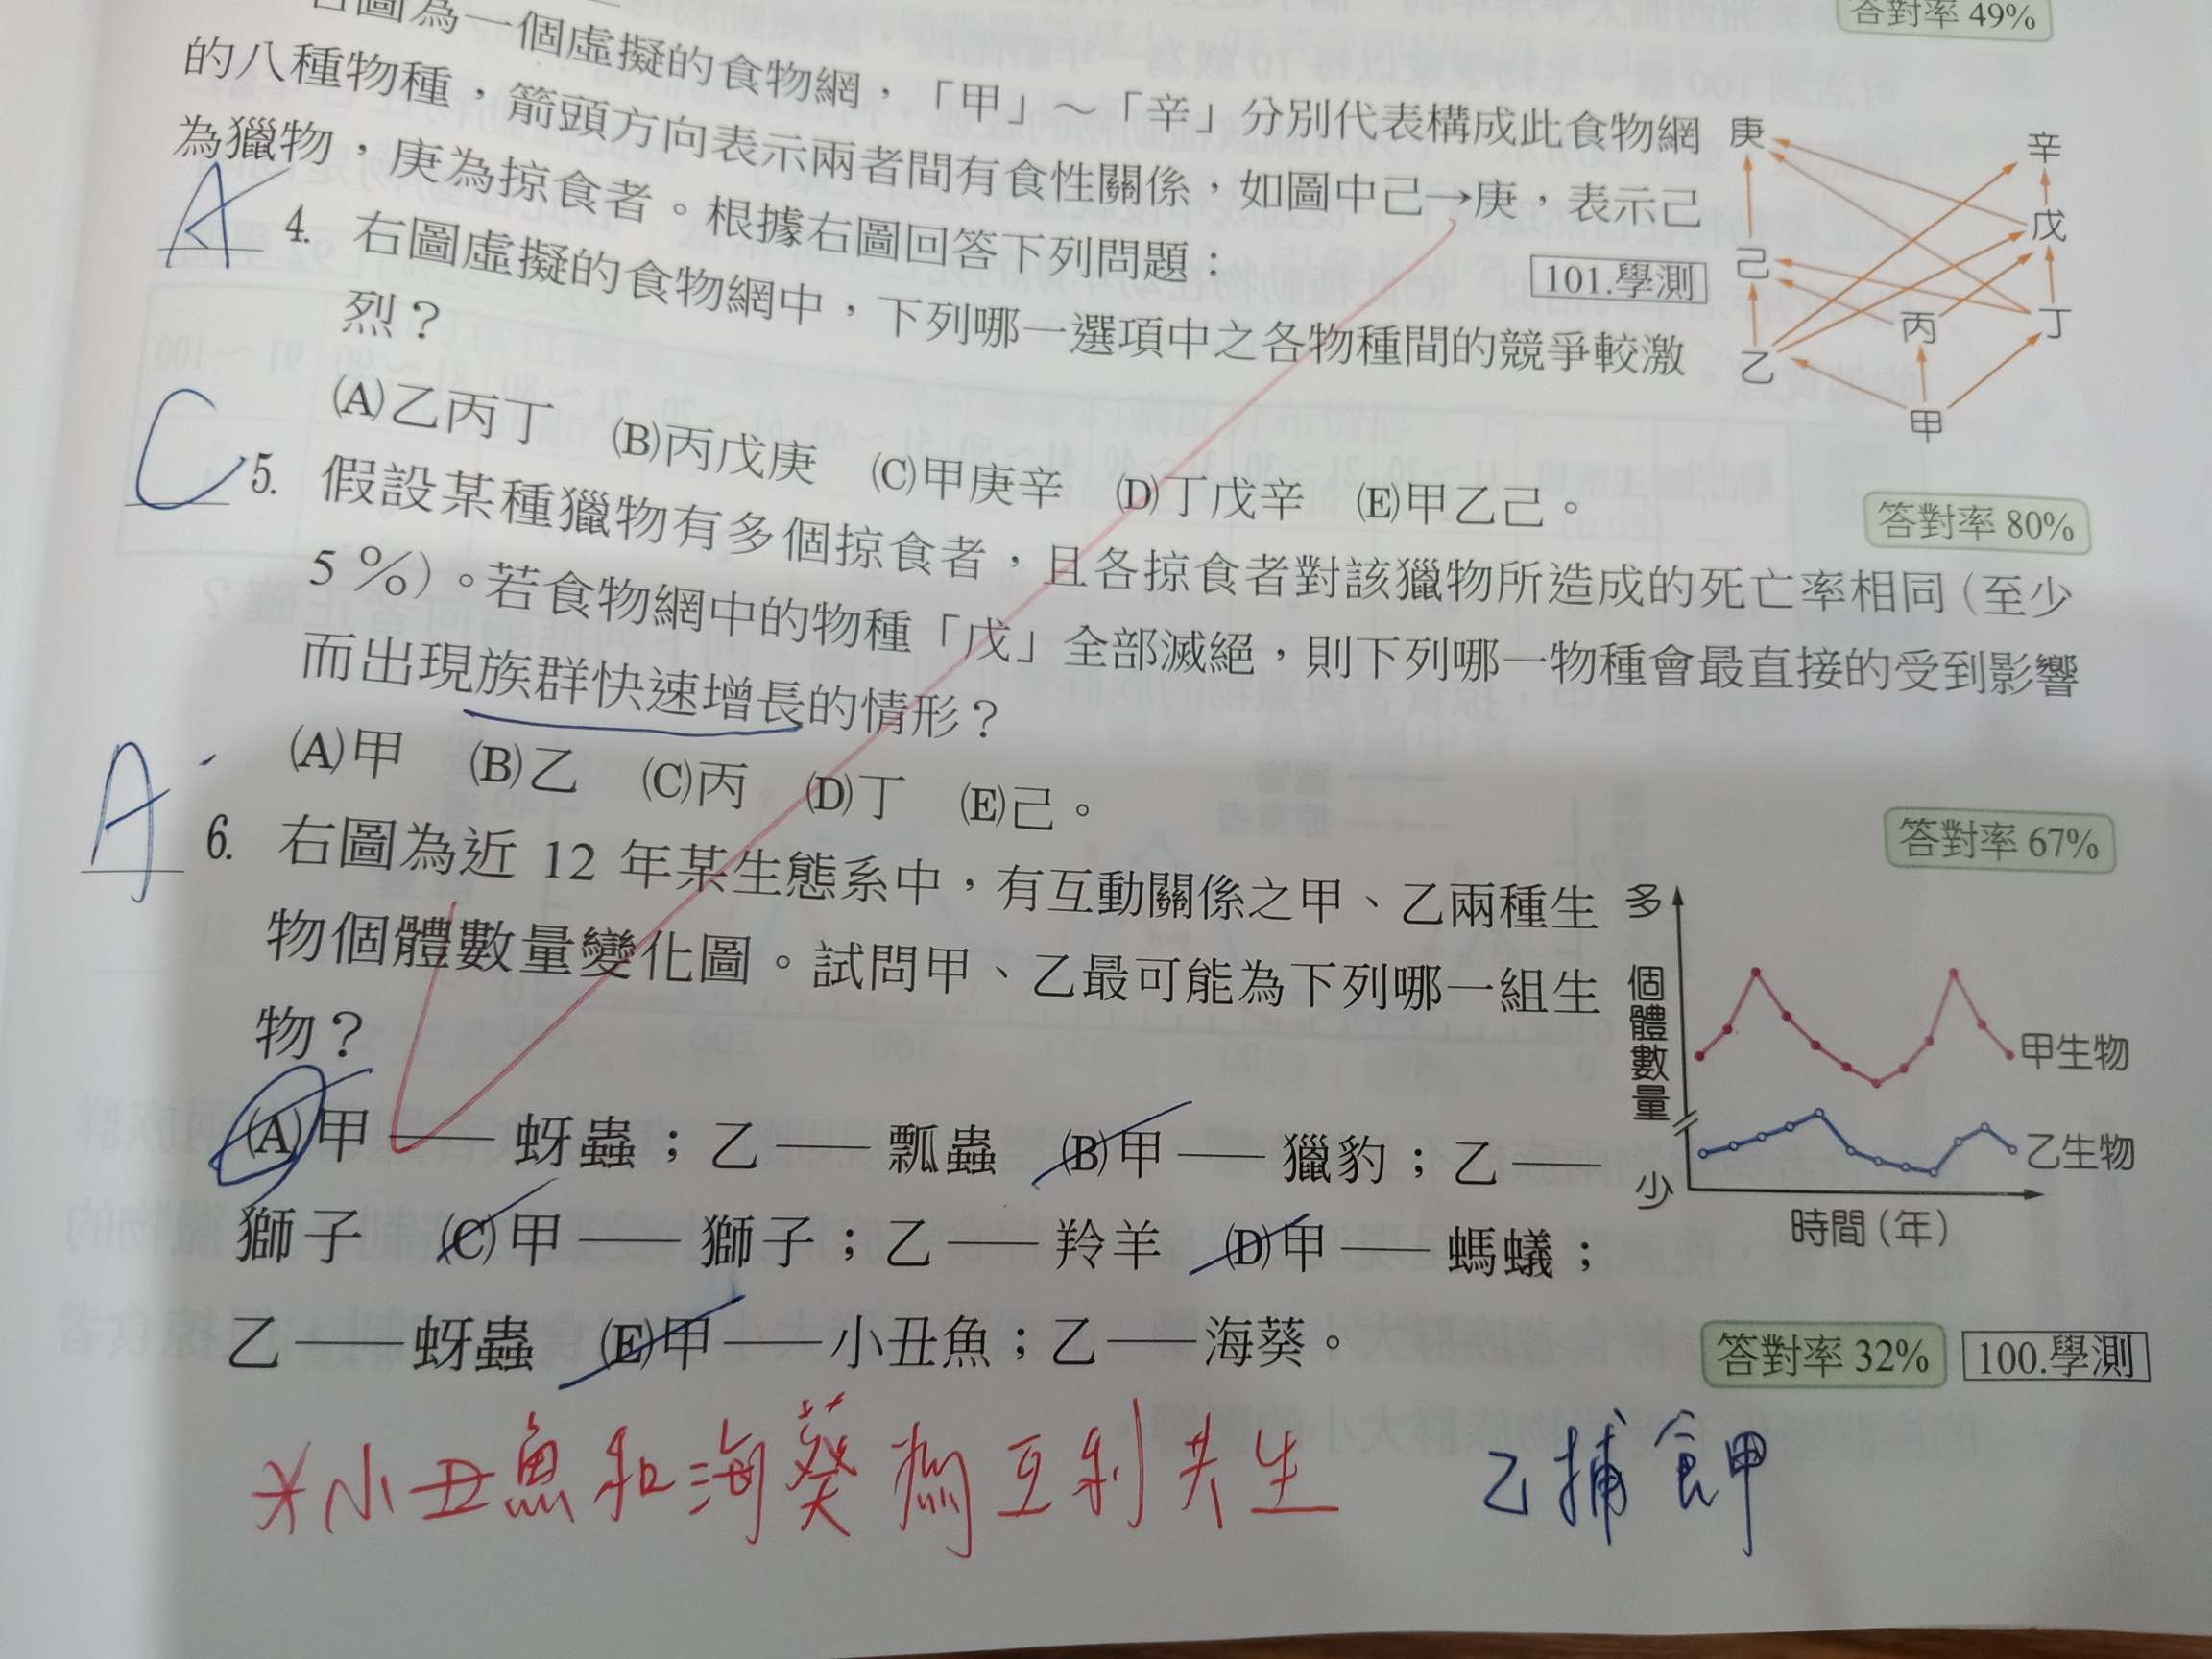 答對率 49%
右圖為一個虛擬的食物網，「甲」～「辛」分別代表構成此食物網
的八種物種，箭頭方向表示兩者間有食性關係，如圖中己→庚，表示己
為獵物，庚為掠食者。根據右圖回答下列問題：
101.學測
庚
辛
戊
己
丙
丁
乙
甲
A 4. 右圖虛擬的食物網中，下列哪一選項中之各物種間的競爭較激
烈？
(A)乙丙丁 (B)丙戊庚 (C)甲庚辛 (D)丁戊辛 (E)甲乙己。
答對率 80%
C 5. 假設某種獵物有多個掠食者，且各掠食者對該獵物所造成的死亡率相同(至少
5 %)。若食物網中的物種「戊」全部滅絕，則下列哪一物種會最直接的受到影響
而出現族群快速增長的情形？
(A)甲 (B)乙 (C)丙 (D)丁 (E)己。
答對率 67%
A 6. 右圖為近 12 年某生態系中，有互動關係之甲、乙兩種生
物個體數量變化圖。試問甲、乙最可能為下列哪一組生
物？
(A)甲——蚜蟲；乙——瓢蟲 (B)甲——獵豹；乙——
獅子 (C)甲——獅子；乙——羚羊 (D)甲——螞蟻；
乙——蚜蟲 (E)甲——小丑魚；乙——海葵。
多
個體數量
少
甲生物
乙生物
時間(年)
答對率 32% 100.學測
*小丑魚和海葵為互利共生
乙捕食甲